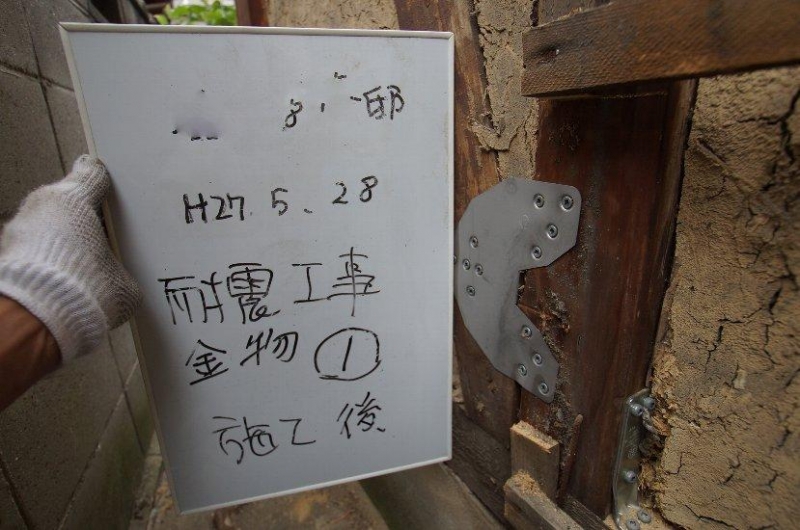 邸
H27.5.28
耐震工事
金物 ①
施工後